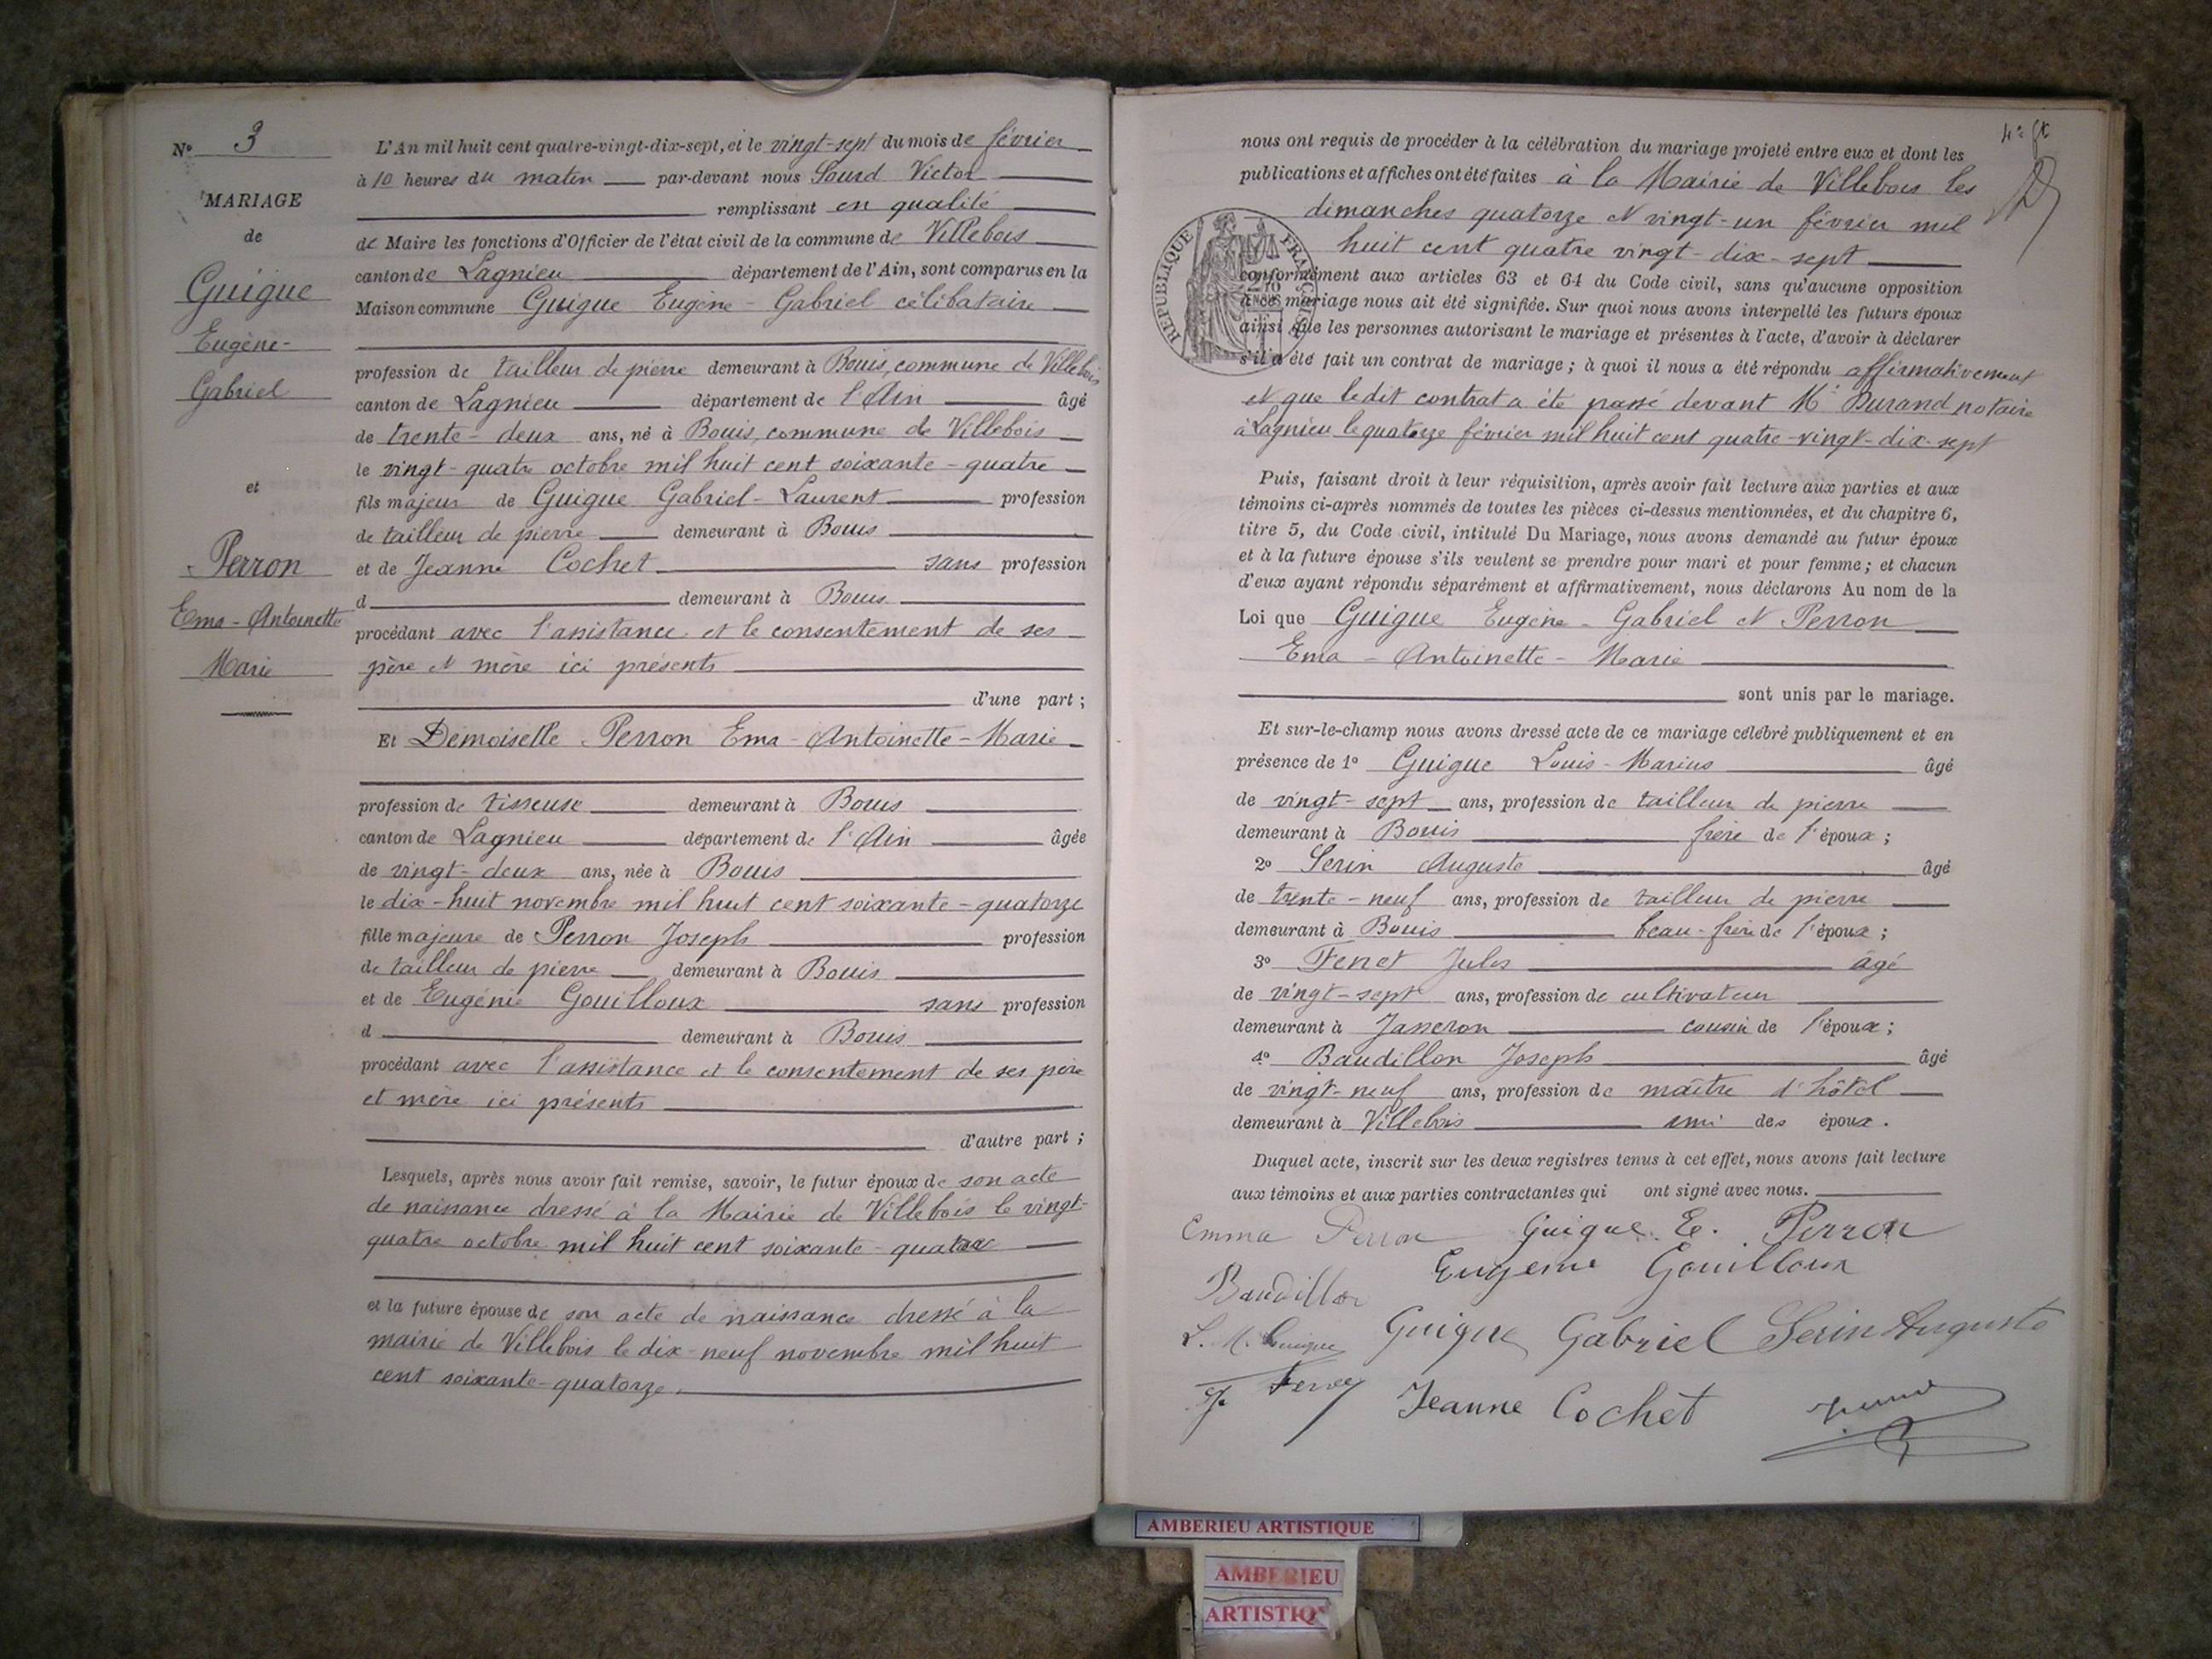 N° 3
MARIAGE
de
Guigue
Eugène-
Gabriel
et
Perron
Ema - Antoinette
Marie
L'An mil huit cent quatre-vingt-dix-sept, et le vingt-sept du mois de février
à 10 heures du matin par-devant nous Sourd Victor
remplissant en qualité
de Maire les fonctions d'Officier de l'état civil de la commune de Villebois
canton de Lagnieu département de l'Ain, sont comparus en la
Maison commune Guigue Eugène - Gabriel célibataire
profession de tailleur de pierre demeurant à Bouis, commune de Villebois
canton de Lagnieu département de l'Ain âgé
de trente - deux ans, né à Bouis, commune de Villebois
le vingt - quatre octobre mil huit cent soixante - quatre
fils majeur de Guigue Gabriel - Laurent profession
de tailleur de pierre demeurant à Bouis
et de Jeanne Cochet sans profession
d demeurant à Bouis
procédant avec l'assistance et le consentement de ses
père et mère ici présents
d'une part ;
Et Demoiselle Perron Ema - Antoinette - Marie
profession de tisseuse demeurant à Bouis
canton de Lagnieu département de l'Ain âgée
de vingt - deux ans, née à Bouis
le dix - huit novembre mil huit cent soixante - quatorze
fille majeure de Perron Joseph profession
de tailleur de pierre demeurant à Bouis
et de Eugénie Gouilloux sans profession
d demeurant à Bouis
procédant avec l'assistance et le consentement de ses père
et mère ici présents
d'autre part ;
Lesquels, après nous avoir fait remise, savoir, le futur époux de son acte
de naissance dressé à la Mairie de Villebois le vingt-
quatre octobre mil huit cent soixante - quatre
et la future épouse de son acte de naissance dressé à la
mairie de Villebois le dix - neuf novembre mil huit
cent soixante - quatorze.
4e ft
nous ont requis de procéder à la célébration du mariage projeté entre eux et dont les
publications et affiches ont été faites à la Mairie de Villebois les
dimanches quatorze et vingt - un février mil
huit cent quatre vingt - dix - sept
RÉPUBLIQUE FRANÇAISE
conformément aux articles 63 et 64 du Code civil, sans qu'aucune opposition
à ce mariage nous ait été signifiée. Sur quoi nous avons interpellé les futurs époux
ainsi que les personnes autorisant le mariage et présentes à l'acte, d'avoir à déclarer
s'il a été fait un contrat de mariage ; à quoi il nous a été répondu affirmativement
et que ledit contrat a été passé devant Me Durand notaire
à Lagnieu le quatorze février mil huit cent quatre - vingt - dix - sept
Puis, faisant droit à leur réquisition, après avoir fait lecture aux parties et aux
témoins ci-après nommés de toutes les pièces ci-dessus mentionnées, et du chapitre 6,
titre 5, du Code civil, intitulé Du Mariage, nous avons demandé au futur époux
et à la future épouse s'ils veulent se prendre pour mari et pour femme ; et chacun
d'eux ayant répondu séparément et affirmativement, nous déclarons Au nom de la
Loi que Guigue Eugène - Gabriel et Perron
Ema - Antoinette - Marie
sont unis par le mariage.
Et sur-le-champ nous avons dressé acte de ce mariage célébré publiquement et en
présence de 1° Guigue Louis - Marius âgé
de vingt - sept ans, profession de tailleur de pierre
demeurant à Bouis frère de l'époux ;
2° Serin Auguste âgé
de trente - neuf ans, profession de tailleur de pierre
demeurant à Bouis beau - frère de l'époux ;
3° Ferret Jules âgé
de vingt - sept ans, profession de cultivateur
demeurant à Jasseron cousin de l'époux ;
4° Baudillon Joseph âgé
de vingt - neuf ans, profession de maître d'hôtel
demeurant à Villebois ami des époux.
Duquel acte, inscrit sur les deux registres tenus à cet effet, nous avons fait lecture
aux témoins et aux parties contractantes qui ont signé avec nous.
Emma Perron Guigue E. Perron
Baudillon Eugenie Gouilloux
L. M. Guigue Guigue Gabriel Serin Auguste
Jeanne Cochet
AMBERIEU ARTISTIQUE
AMBERIEU
ARTISTIQ